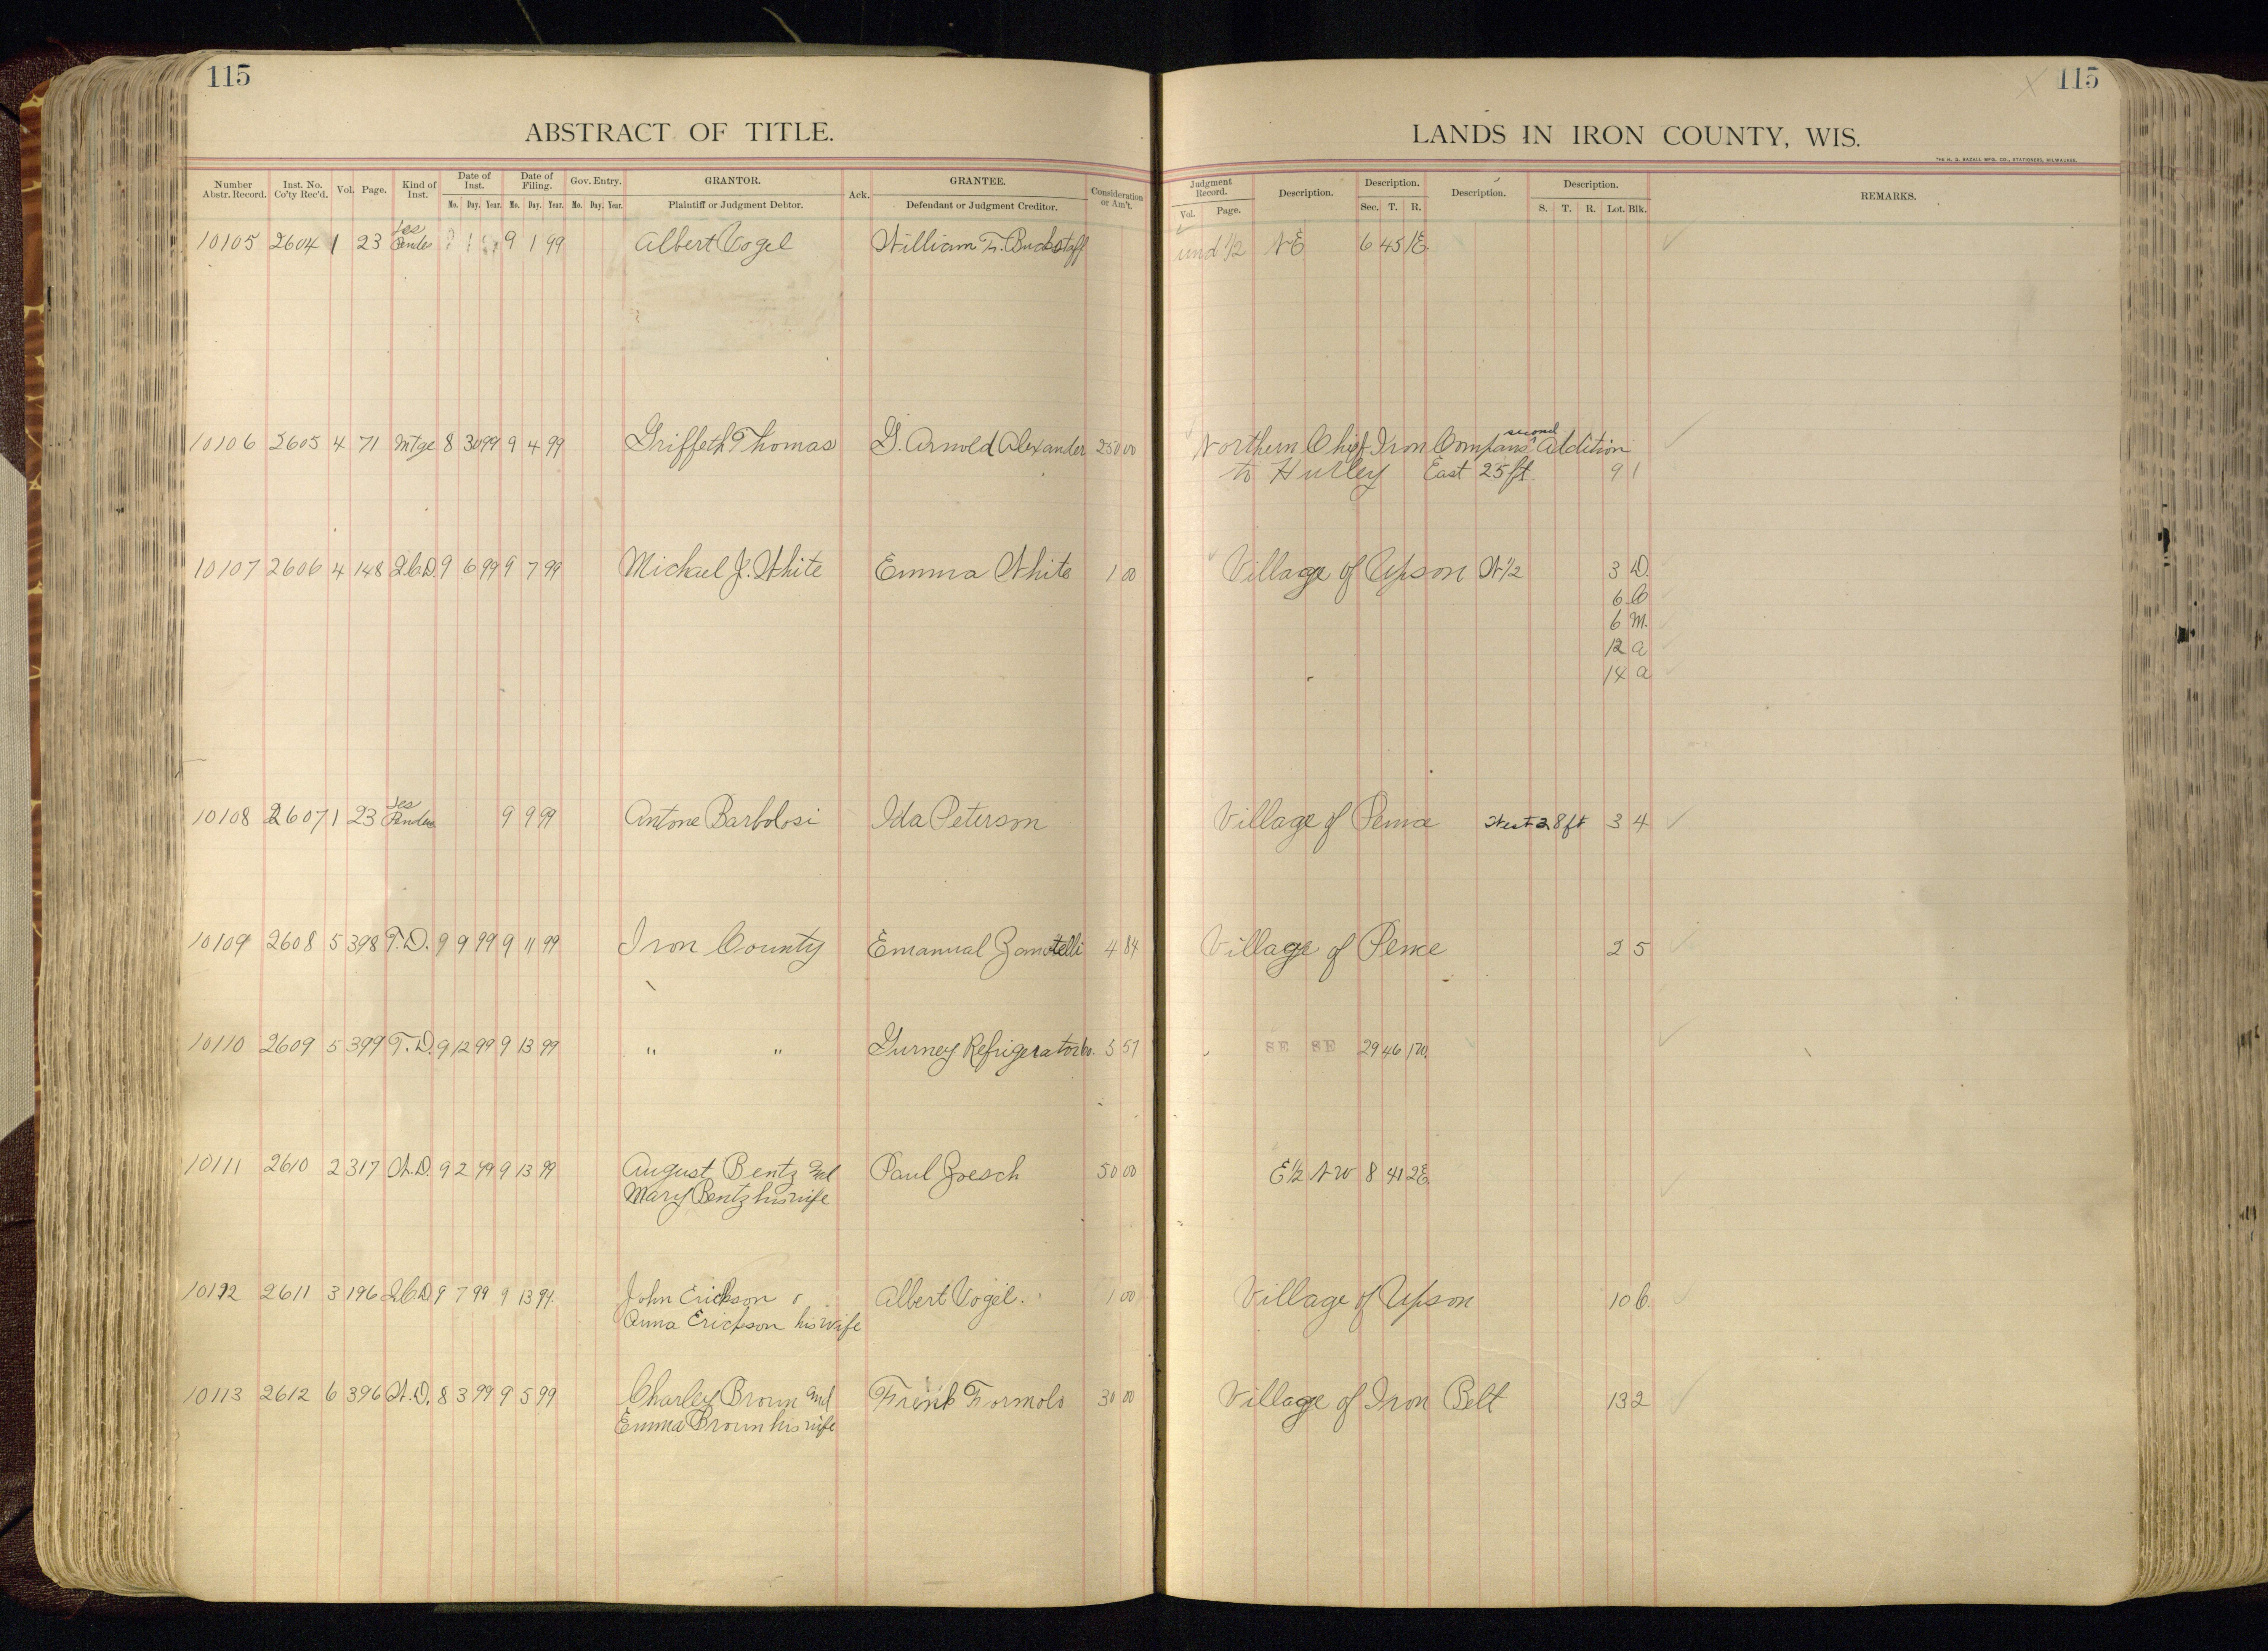 115
115
ABSTRACT OF TITLE.
LANDS IN IRON COUNTY, WIS.
THE H. G. RAZALL MFG. CO., STATIONERS, MILWAUKEE.
Number Abstr. Record. Inst. No. Co'ty Rec'd. Vol. Page. Kind of Inst. Date of Inst. Mo. Day. Year. Date of Filing. Mo. Day. Year. Gov. Entry. Mo. Day. Year. GRANTOR. Plaintiff or Judgment Debtor. Ack. GRANTEE. Defendant or Judgment Creditor. Consideration or Am't.
Judgment Record. Vol. Page. Description. Description. Sec. T. R. Description. Description. S. T. R. Lot. Blk. REMARKS.
10105 2604 1 23 Les Pendes 9 1 99 Albert Vogel William F. Buckstaff und 1/2 NE 6 45 1E.
10106 2605 4 71 Mtge 8 30 99 9 4 99 Griffeth Thomas G. Arnold Alexander 250 00 Northern Chief Iron Companys second Addition
to Hurley East 25 ft. 9 1
10107 2606 4 148 Q.C.D. 9 6 99 9 7 99 Michael J. White Emma White 1 00 Village of Upson N 1/2 3 D.
6 C
6 M.
12 a
14 a
10108 2607 1 23 Les Pendes 9 9 99 Antone Barbolosi Ida Peterson Village of Pence West 28 ft 3 4
10109 2608 5 398 T.D. 9 9 99 9 11 99 Iron County Emanual Zanotelli 4 84 Village of Pence 2 5
10110 2609 5 399 T.D. 9 12 99 9 13 99 " " Gurney Refrigerator Co. 5 57 SE SE 29 46 1W.
10111 2610 2 317 W.D. 9 2 99 9 13 99 August Bentz and Paul Zoesch 50 00 E 1/2 NW 8 41 2E.
Mary Bentz his wife
10112 2611 3 196 Q.C.D. 9 7 99 9 13 99. John Erickson Albert Vogel. 1 00 Village of Upson 10 6
Anna Erickson his wife
10113 2612 6 396 W.D. 8 3 99 9 5 99 Charley Broun and Frank Formolo 30 00 Village of Iron Belt 13 2
Emma Broun his wife